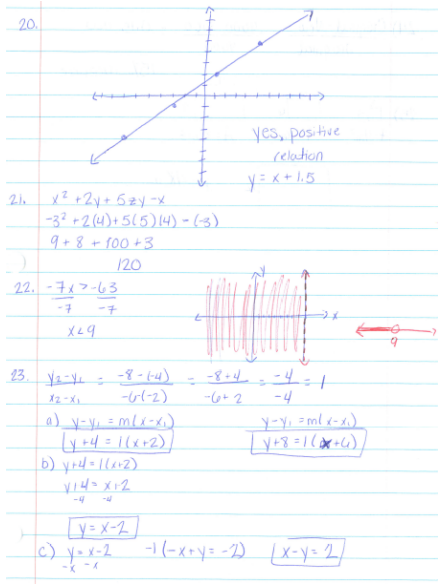 20.
yes, positive
relation
y = x + 1.5
21. x² + 2y + 5zy - x
-3² + 2(4) + 5(5)(4) - (-3)
9 + 8 + 100 + 3
120
22. -7x > -63
-7 -7
x < 9
y
x
9
23. y₂-y₁ / x₂-x₁ = -8-(-4) / -6-(-2) = -8+4 / -6+2 = -4 / -4 = 1
a) y-y₁ = m(x-x₁) y-y₁ = m(x-x₁)
y+4 = 1(x+2) y+8 = 1(x+6)
b) y+4 = 1(x+2)
y+4 = x+2
-4 -4
y = x-2
c) y = x-2 -1(-x+y = -2) x-y = 2
-x -x